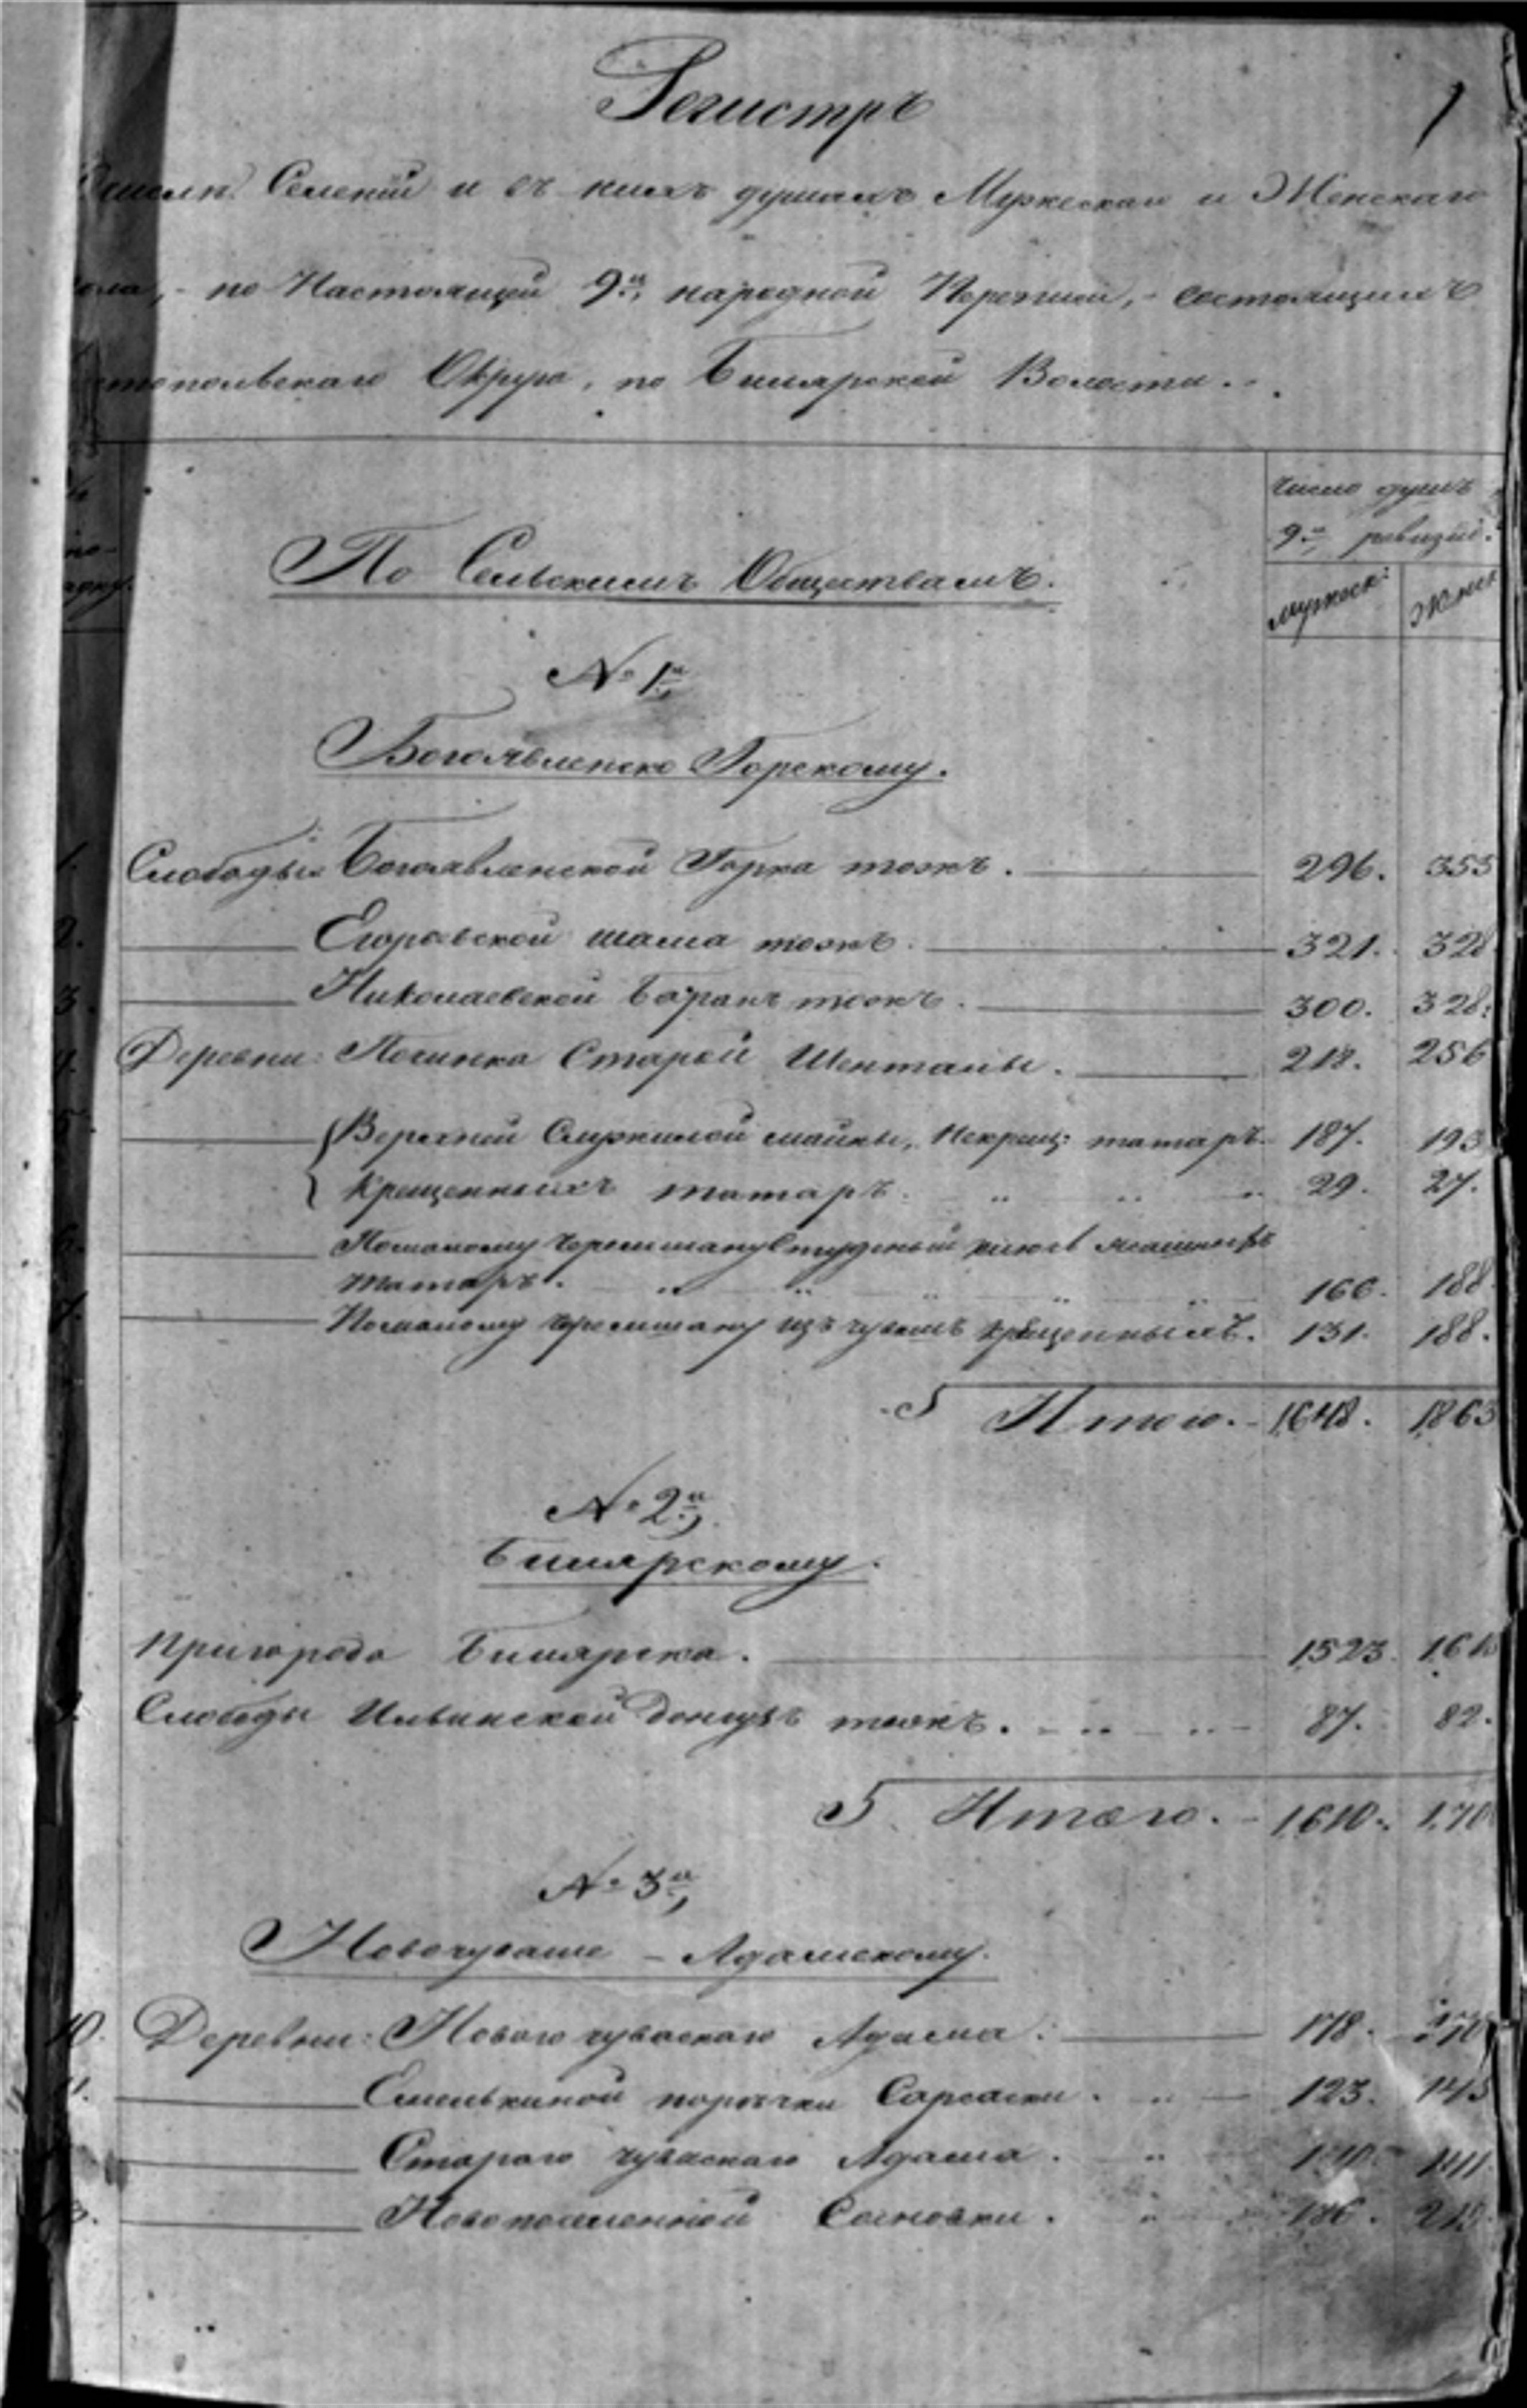 Регистръ
1
Селеній и въ нихъ душахъ Мужескаго и Женскаго
пола, - по Настоящей 9й народной Переписи, - состоящихъ
стопольскаго Округа, по Билярской Волости.
Число душъ
9й ревизіи.
По Сельскимъ Обществамъ.
мужеск: женск
№ 1й
Богоявленско Горскому.
1. Слободы: Богоявленской Горка тожъ. 296. 353
2. Егорьевской шама тожъ. 321. 328
3. Николаевской Баранъ тожъ. 300. 328.
4. Деревни: Починка Старой Шенталы. 218. 256
5. Верхней Служилой майны, Некрещ: татаръ. 187. 193
Крещенныхъ татаръ. 29. 27.
6. Поманому Черемшану
татаръ. 166. 188.
7. Поманому Черемшану изъ чувашъ крещенныхъ. 131. 188.
Итого. 1648. 1863
№ 2й
Билярскому.
Пригорода Билярска. 1523.
Слободы Ильинской Донцовъ тожъ. 87. 82.
Итого. 1610. 170
№ 3й
Новочуваше - Адамскому.
10. Деревни: Новаго чувашскаго Адама: 178.
11. Емелькиной поречки Сарсаски. 123. 145
Стараго чувашскаго Адама. 141.
Новопоселенной Сосновки. 186. 215.